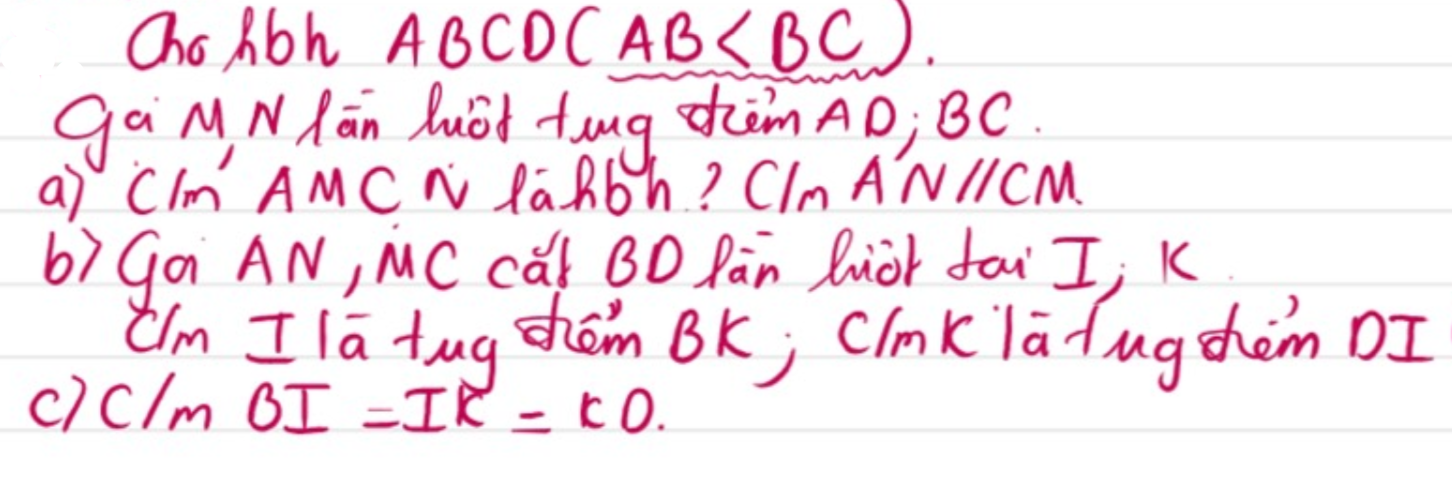 Cho hbh ABCD (AB < BC).
Gọi M, N lần lượt trung điểm AD; BC.
a) C/m AMCN là hbh? C/m AN // CM.
b) Gọi AN, MC cắt BD lần lượt tại I; K.
C/m I là trung điểm BK; C/m K là trung điểm DI
c) C/m BI = IK = KD.